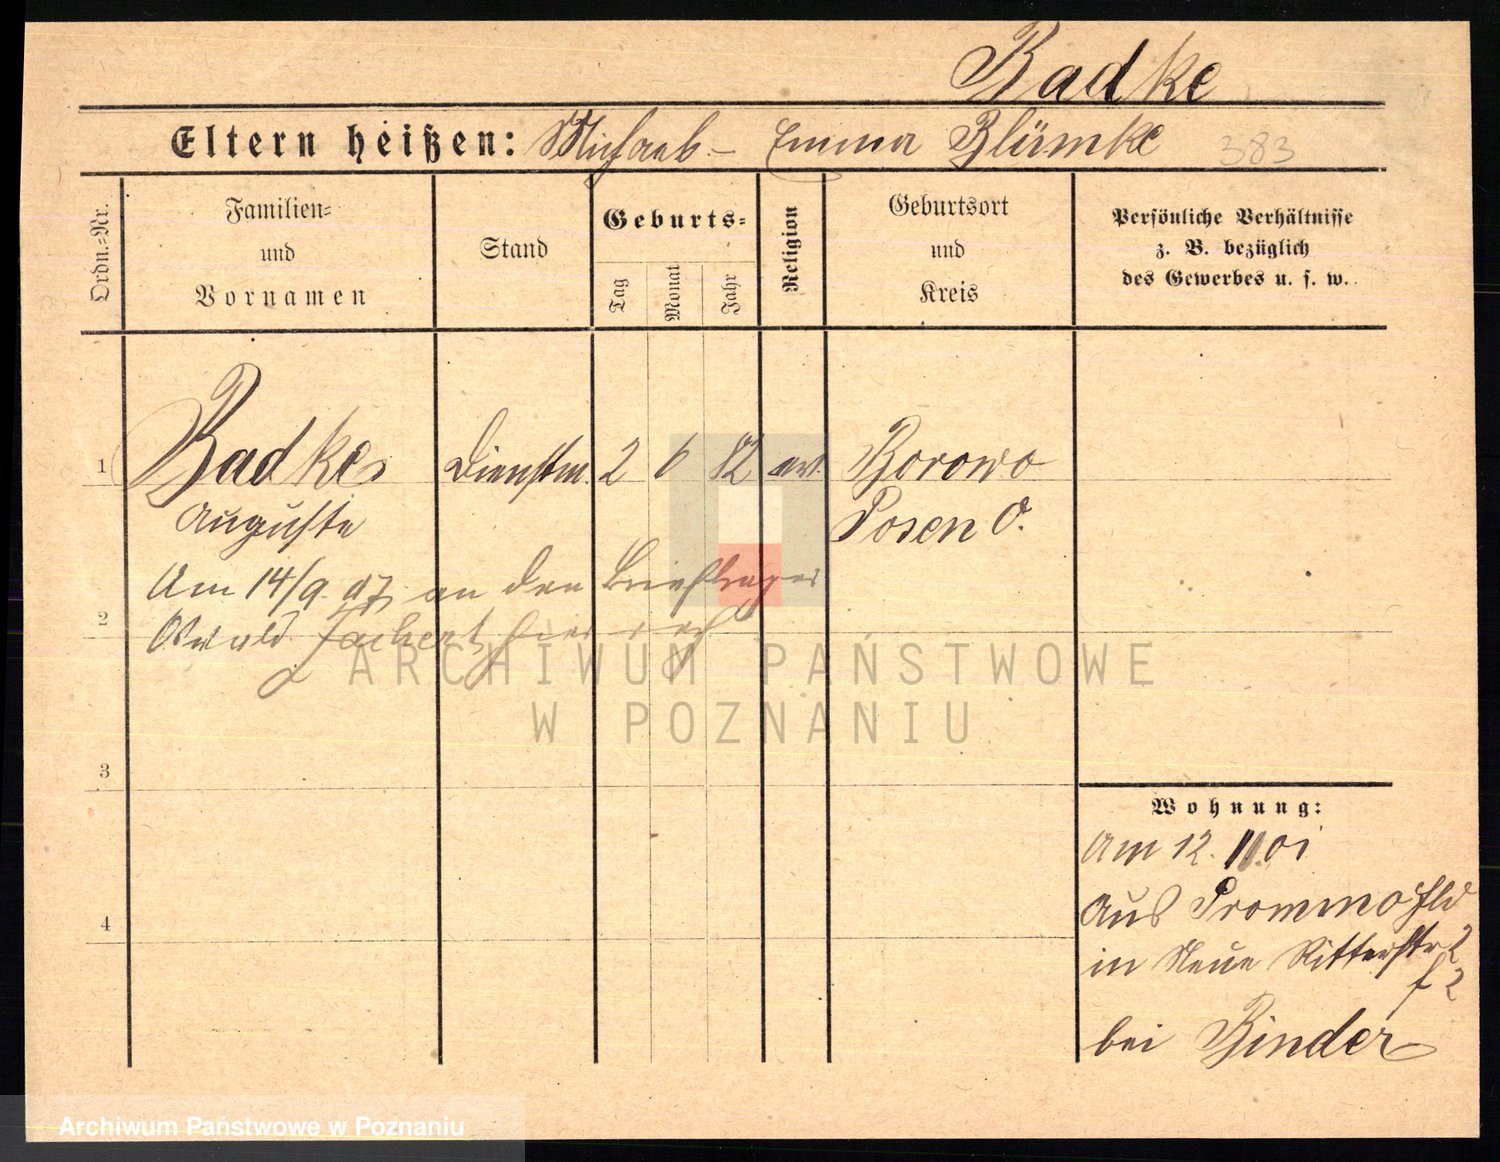 Badke
Eltern heißen: Michael – Emma Blümke 383
Ordn.-Nr.
Familien-
und
Vornamen
Stand
Geburts-
Tag
Monat
Jahr
Religion
Geburtsort
und
Kreis
Persönliche Verhältnisse
z. B. bezüglich
des Gewerbes u. s. w.
1 Badke Dienstm. 2 6 82 ev. Borowo
Auguste Posen O.
Am 14/9. 07 an den Briefträger
2 Oswald hier verh
ARCHIWUM PAŃSTWOWE
W POZNANIU
3
Wohnung:
Am 12. 11 01
4 Aus
in Neue Ritterstr 2
f 2
bei Binder
Archiwum Państwowe w Poznaniu